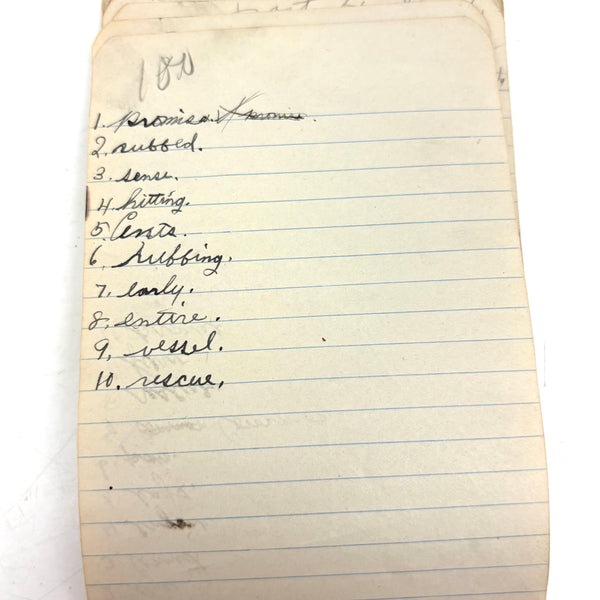 100
1. promise. promise.
2. rubbed.
3. sense.
4. hitting.
5. Costs.
6. rubbing.
7. early.
8. entire.
9. vessel.
10. rescue.